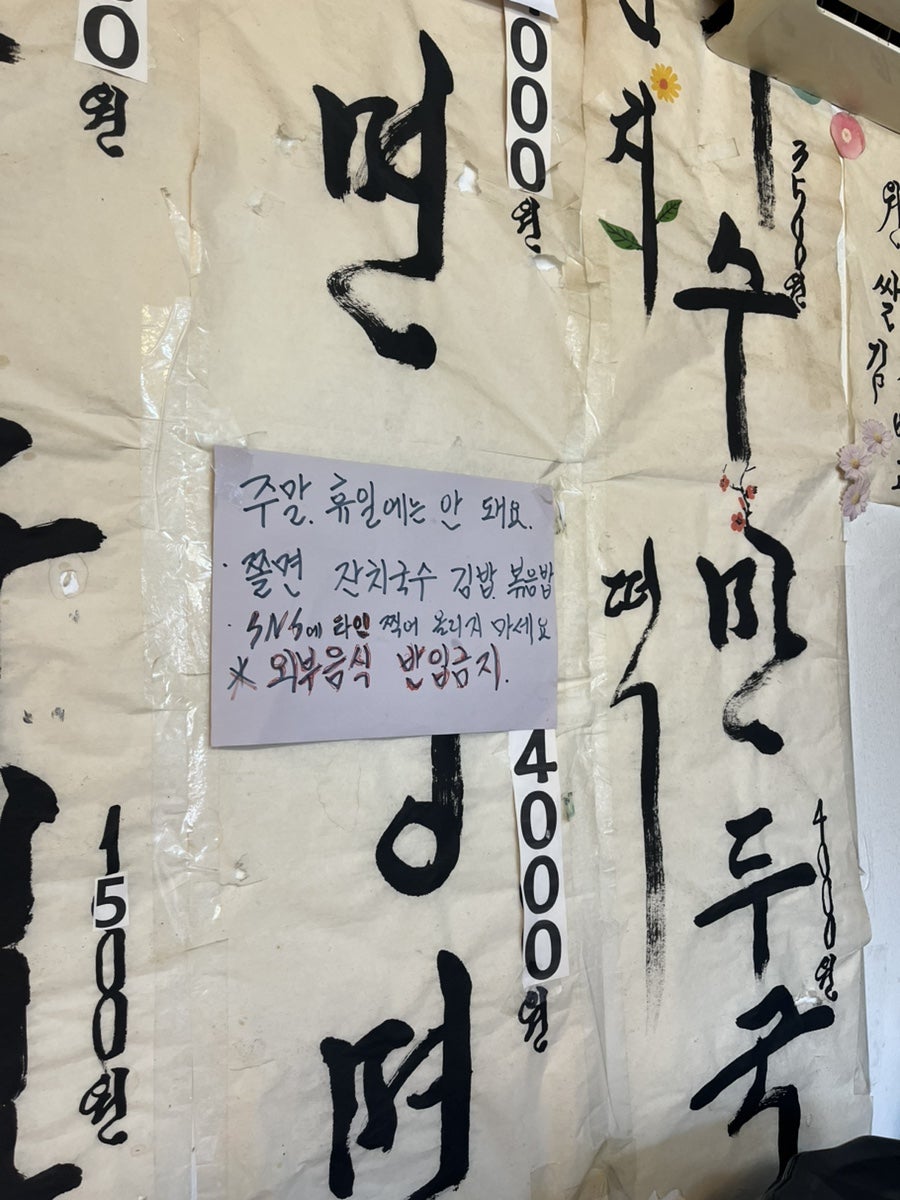 0
원
1500원
면
000원
주말. 휴일에는 안 돼요.
· 쫄면 잔치국수 김밥 볶음밥
· SNS에 타인 찍어 올리지 마세요
* 외부음식 반입금지.
4000원
치
떡
수
3500원
만두국
4000원